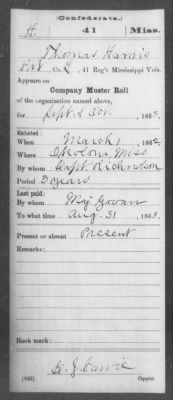 (Confederate.)
H. 41 Miss.
Thomas Harris
Pvt, Co. L, 41 Reg't Mississippi Vols.
Appears on
Company Muster Roll
of the organization named above,
for Sept. & Oct. , 1863.
Enlisted:
When March 1 , 1862.
Where Okolona, Miss
By whom Capt. Richardson
Period 3 years
Last paid:
By whom Maj Govan
To what time Aug. 31 , 1863.
Present or absent Present
Remarks:
Book mark:
(642) Copyist.